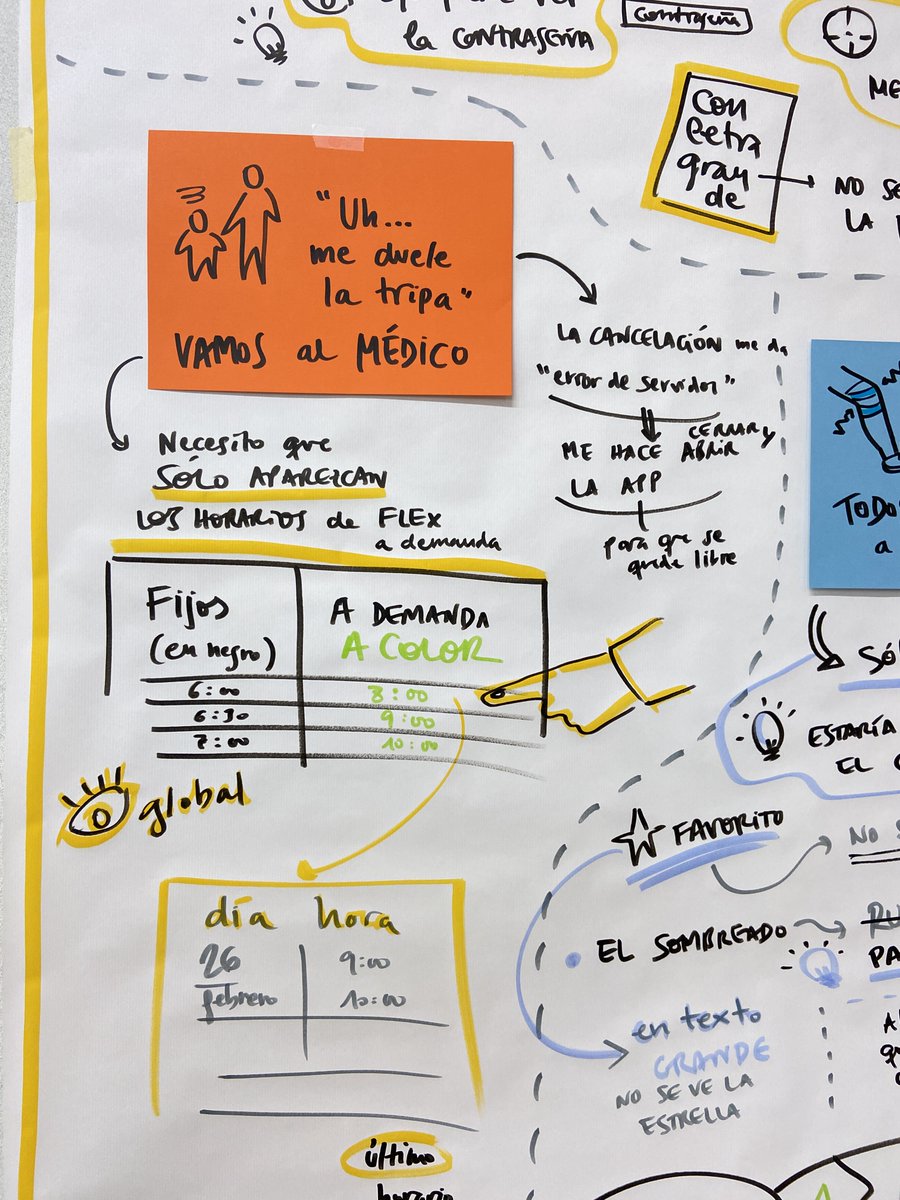 la CONTRASEÑA
contraseña
ME
Con
letra
gran
de
NO SE
LA
"Uh...
me duele
la tripa"
VAMOS al MÉDICO
LA CANCELACIÓN me da
"error de servidor"
ME HACE CERRAR y ABRIR
LA APP
para que se
quede libre
Necesito que
SÓLO APAREZCAN
LOS HORARIOS de FLEX
a demanda
Fijos
(en negro)
6:00
6:30
7:00
A DEMANDA
A COLOR
8:00
9:00
10:00
global
día hora
26
febrero
9:00
10:00
último
horario
TODOS
a
SÓL
ESTARÍA
EL
FAVORITO
NO S
EL SOMBREADO
RU
PA
en texto
GRANDE
NO SE VE LA
ESTRELLA
A
qu